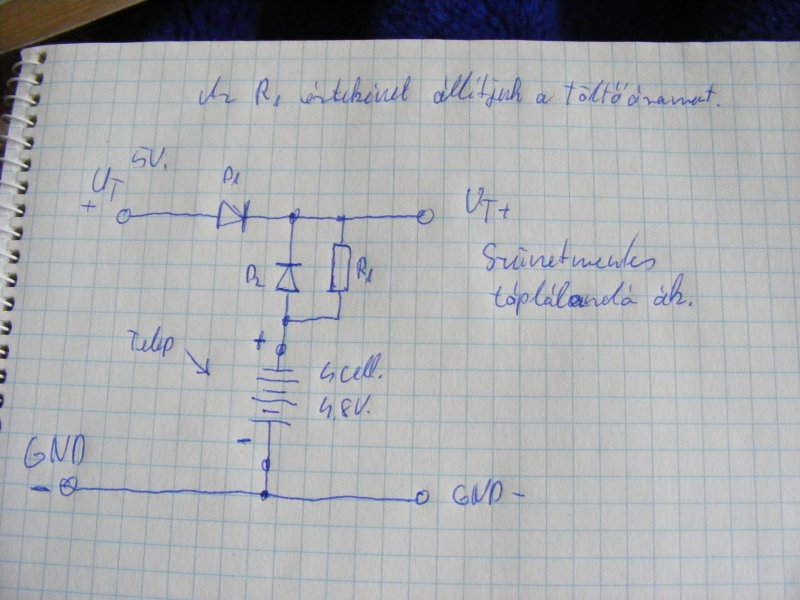 Az R1 értékével állítjuk a töltőáramot.
5V.
UT
+
D1
UT+
D2
R1
Szünetmentes
táplálandó ák.
Telep
+
4 cell.
4,8V.
-
GND
-
GND -